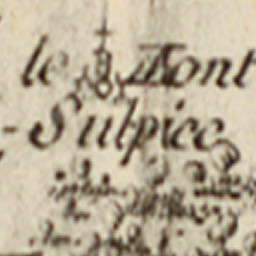 le Mont
- Sulpice